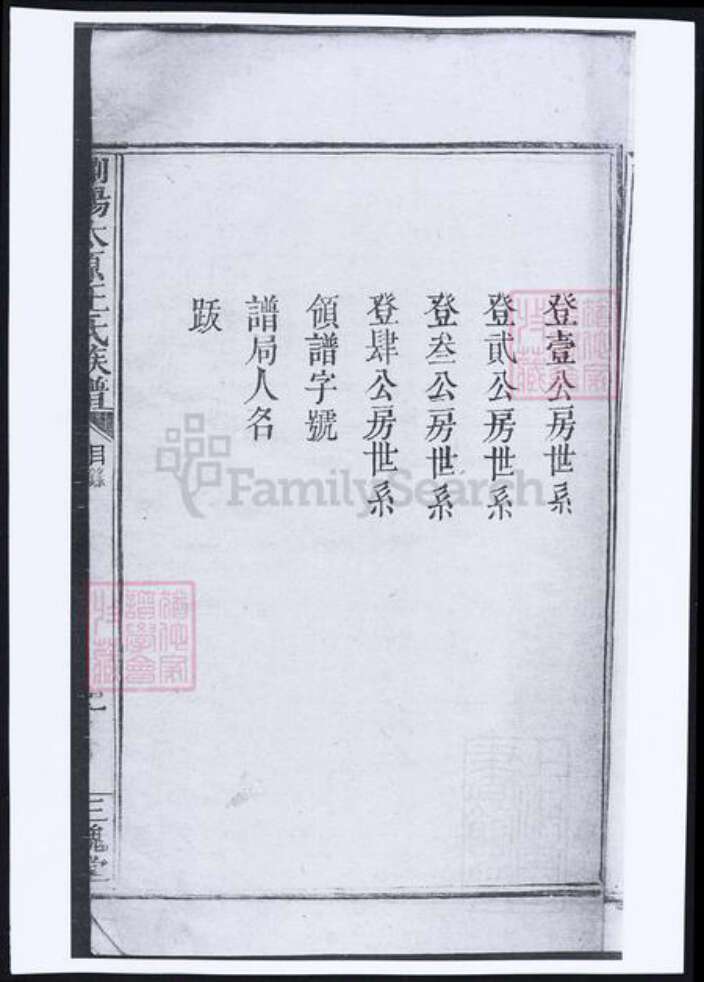 登壹公房世系
登貳公房世系
登叁公房世系
登肆公房世系
領譜字號
譜局人名
跋
瀏陽太原王氏族譜
目錄
三槐堂
FamilySearch